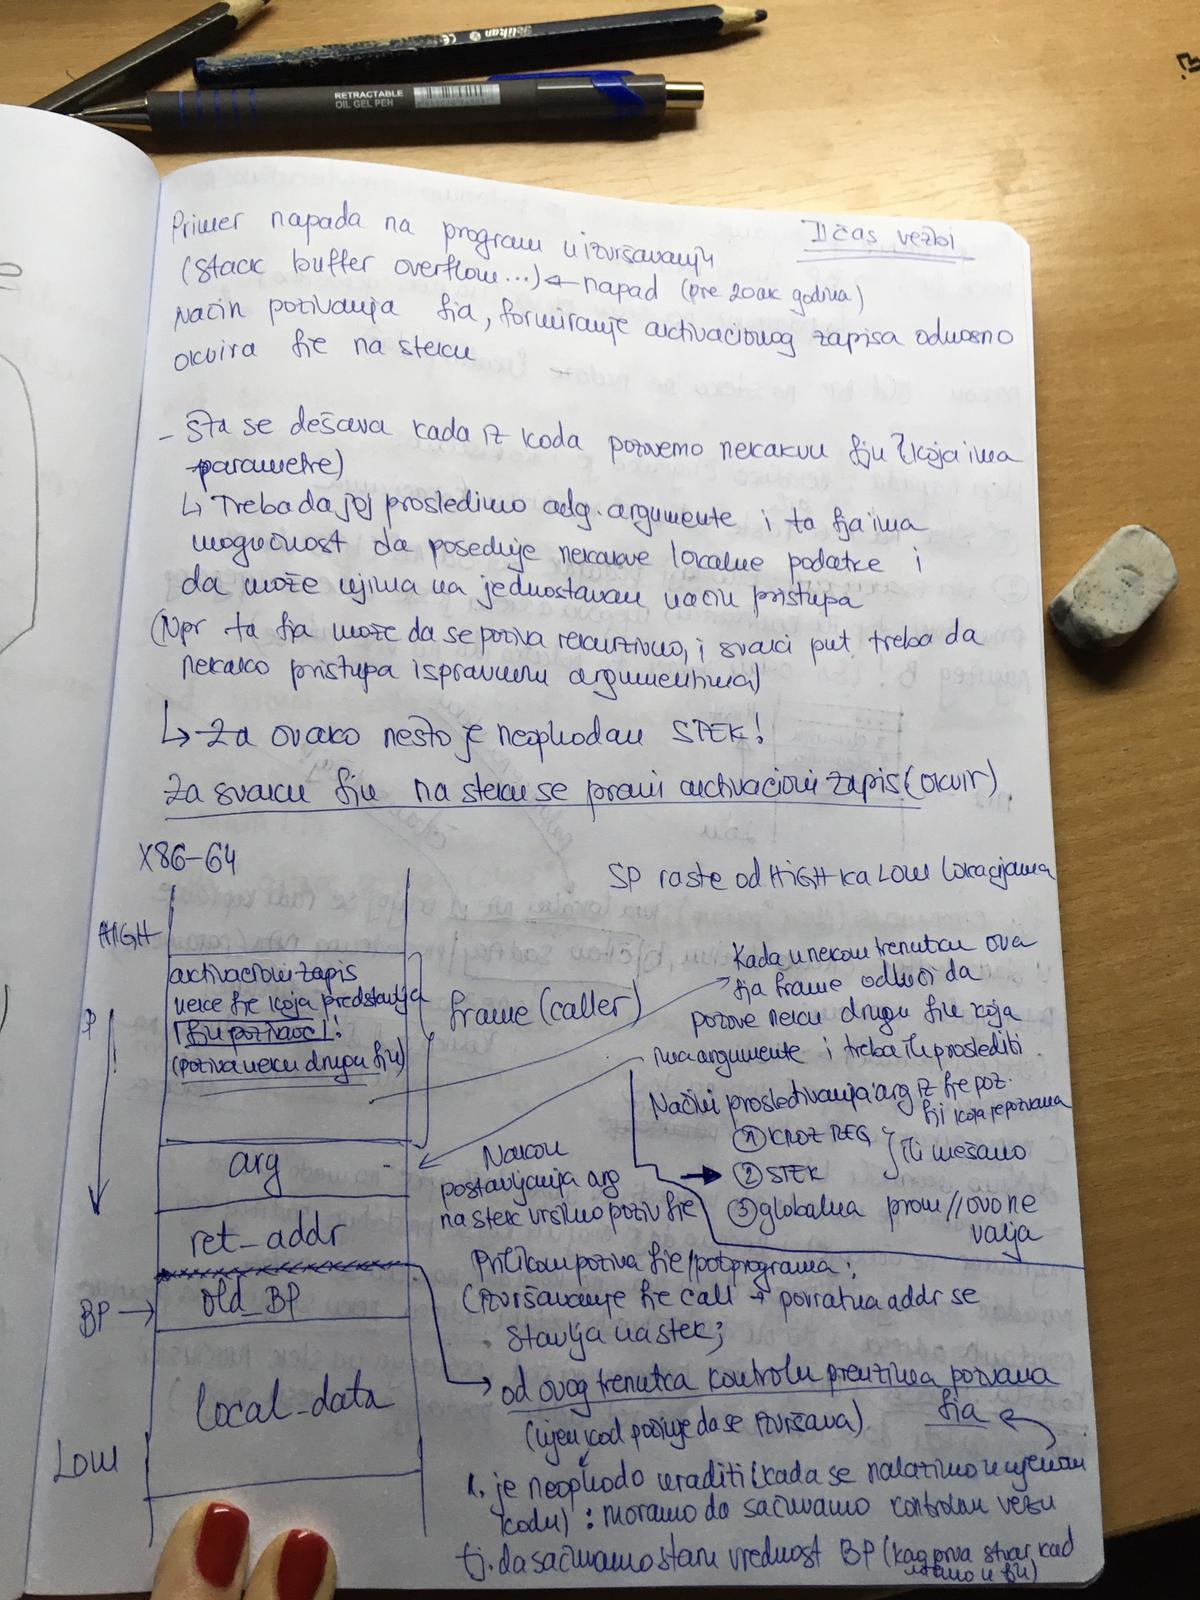 Pelikan
RETRACTABLE
OIL GEL PEN
II čas vežbi
Primer napada na program u izvršavanju
(stack buffer overflow...) ← napad (pre 20ak godina)
Način pozivanja fja, formiranje aktivacionog zapisa odnosno
okvira fje na steku
- Šta se dešava kada iz koda pozovemo nekakvu fju (koja ima
parametre)
↳ Treba da joj prosledimo odg. argumente i ta fja ima
mogućnost da poseduje nekakve lokalne podatke i
da može njima na jednostavan način pristupa
(Npr ta fja može da se poziva rekurzivno, i svaki put treba da
nekako pristupa ispravnim argumentima)
↳ Za ovako nešto je neophodan STEK!
Za svaku fju na steku se pravi aktivacioni zapis (okvir)
X86-64
SP raste od HIGH ka LOW lokacijama
HIGH
aktivacioni zapis
neke fje koja predstavlja
fju pozivaoc!
(poziva neku drugu fju)
frame (caller)
Kada u nekom trenutku ova
fja frame odluči da
pozove neku drugu fju koja
ima argumente i treba ih proslediti
Načini prosleđivanja arg iz fje poz.
fji koja je pozvana
① KROZ REG
② STEK
ili mešano
③ globalna prom // ovo ne
valja
arg
Nakon
postavljanja arg
na stek vršimo poziv fje
ret_addr
Prilikom poziva fje/potprograma:
(izvršavanje fje call → povratna addr se
stavlja na stek;
BP →
old_BP
→ od ovog trenutka kontrolu preuzima pozvana
fja
(njen kod počinje da se izvršava).
local_data
LOW
1. je neophodo uraditi (kada se nalazimo u njenom
kodu) : moramo da sačuvamo kontrolnu vezu
tj. da sačuvamo staru vrednost BP (kao prva stvar kad
uđemo u fju)